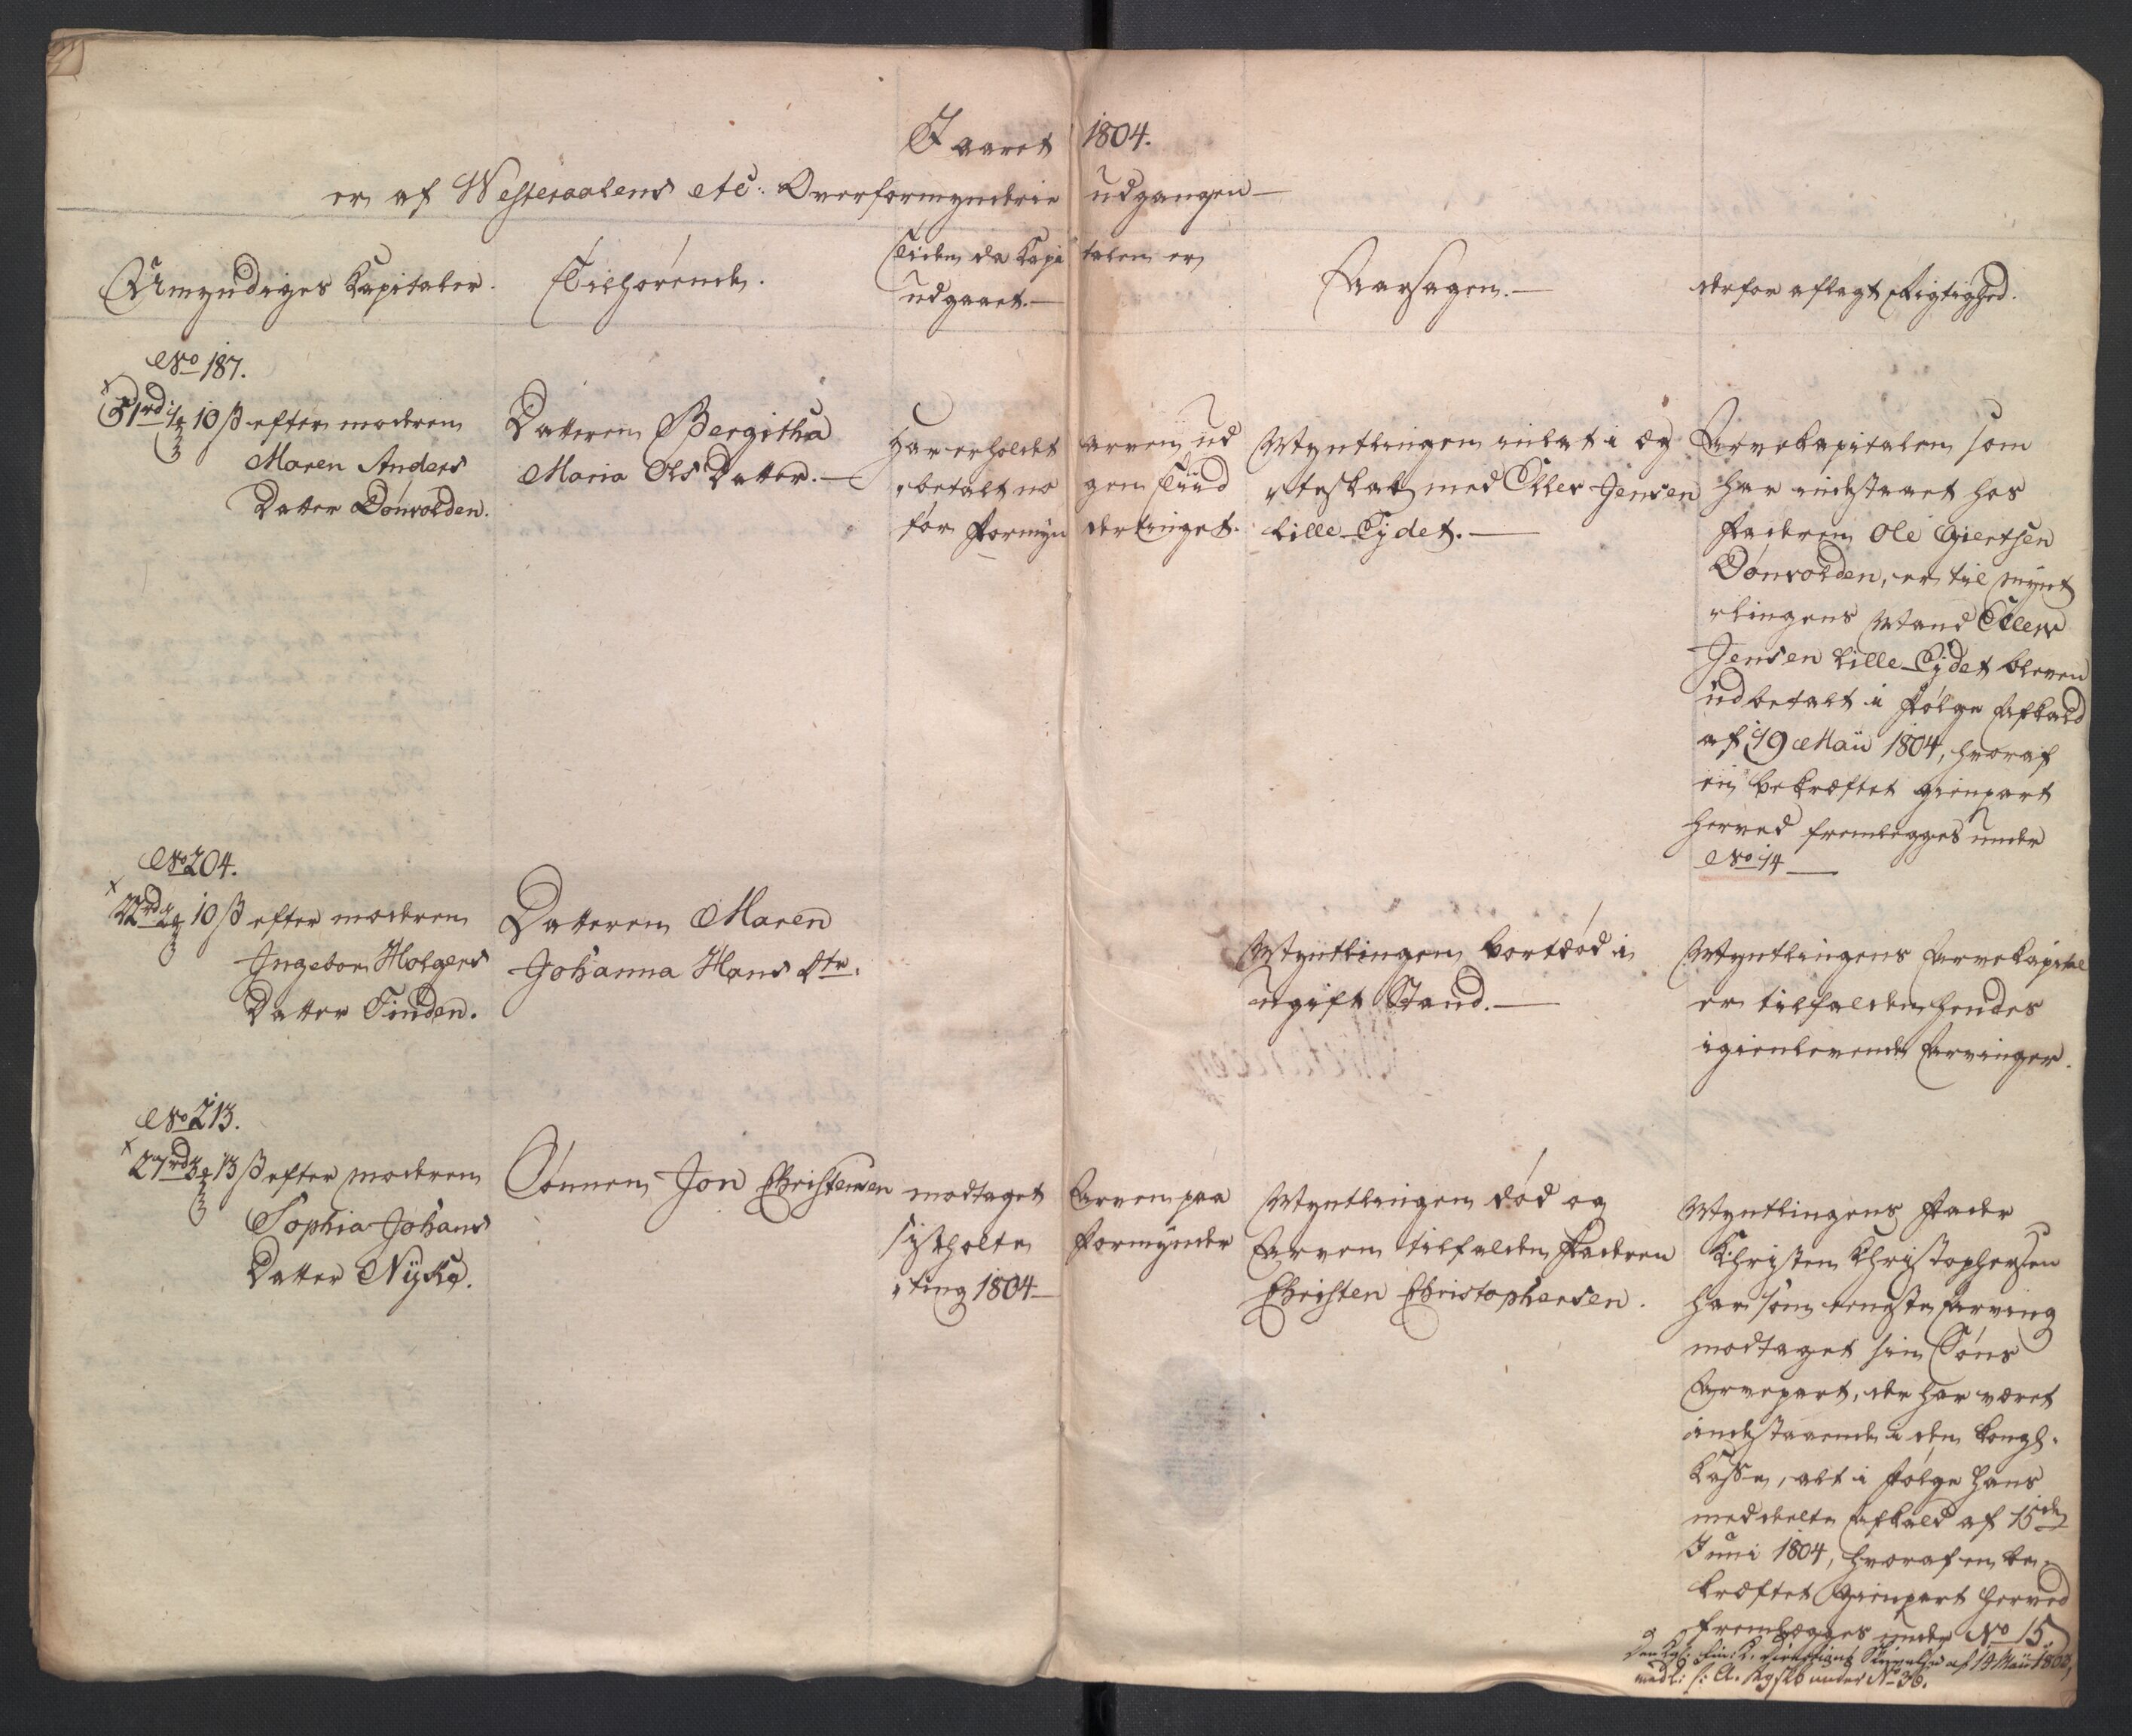 I aaret 1804.
er af Westeraalens etc: Overformynderie udgangen
Umyndiges Kapitaler.
Tilhørende.
Tiden da Kapitalen er
udgaaet.
Aarsagen.
derfor aflagt Rigtighed.
No 187.
51 rd 1 10 ß efter moderen
Maren Anders
Datter Dønvolden.
Datteren Bergitha
Maria Ols Datter.
har erholdt arven ud
betalt no gen Tiid
før Formyn dertinget.
Myntlingen indlat i æg
teskab med Eller Jensen
Lille-Eydet.
Arvekapitalen som
har indestaaet hos
Faderen Ole Giertsen
Dønvolden, er til Mynt
lingens Mand Eller
Jensen Lille-Eydet bleven
udbetalt i Følge Afkald
af 19 Maii 1804, hvoraf
en bekræftet gienpart
herved fremlægges under
No 14
No 204.
22 rd 2 10 ß efter moderen
Ingebor Holgers
Datter Tinden.
Datteren Maren
Johanna Hans Dtr.
Myntlingen bortdød i
ugift Stand.
Myntlingens Arvekapital
er tilfalden hendes
igienlevende Arvinger.
No 213.
27 rd 3 13 ß efter moderen
Sophia Johans
Datter Nyke.
Sønnen Jon Christensen
modtaget Arven paa
sistholte Formynder
ting 1804
Myntlingen død og
Arven tilfalden Faderen
Christen Christophersen.
Myntlingens Fader
Christen Christophersen
har som eneste Arving
modtaget sin Søns
Arvepart, der har været
indestaaende i den kongl.
Kasse, alt i Følge hans
meddeelte Afkald af 15de
Juni 1804, hvoraf en be
kræftet Gienpart herved
fremlægges under No 15.
Den Kgl: Direktions Skrivelse af 14 Maii
under No 36.